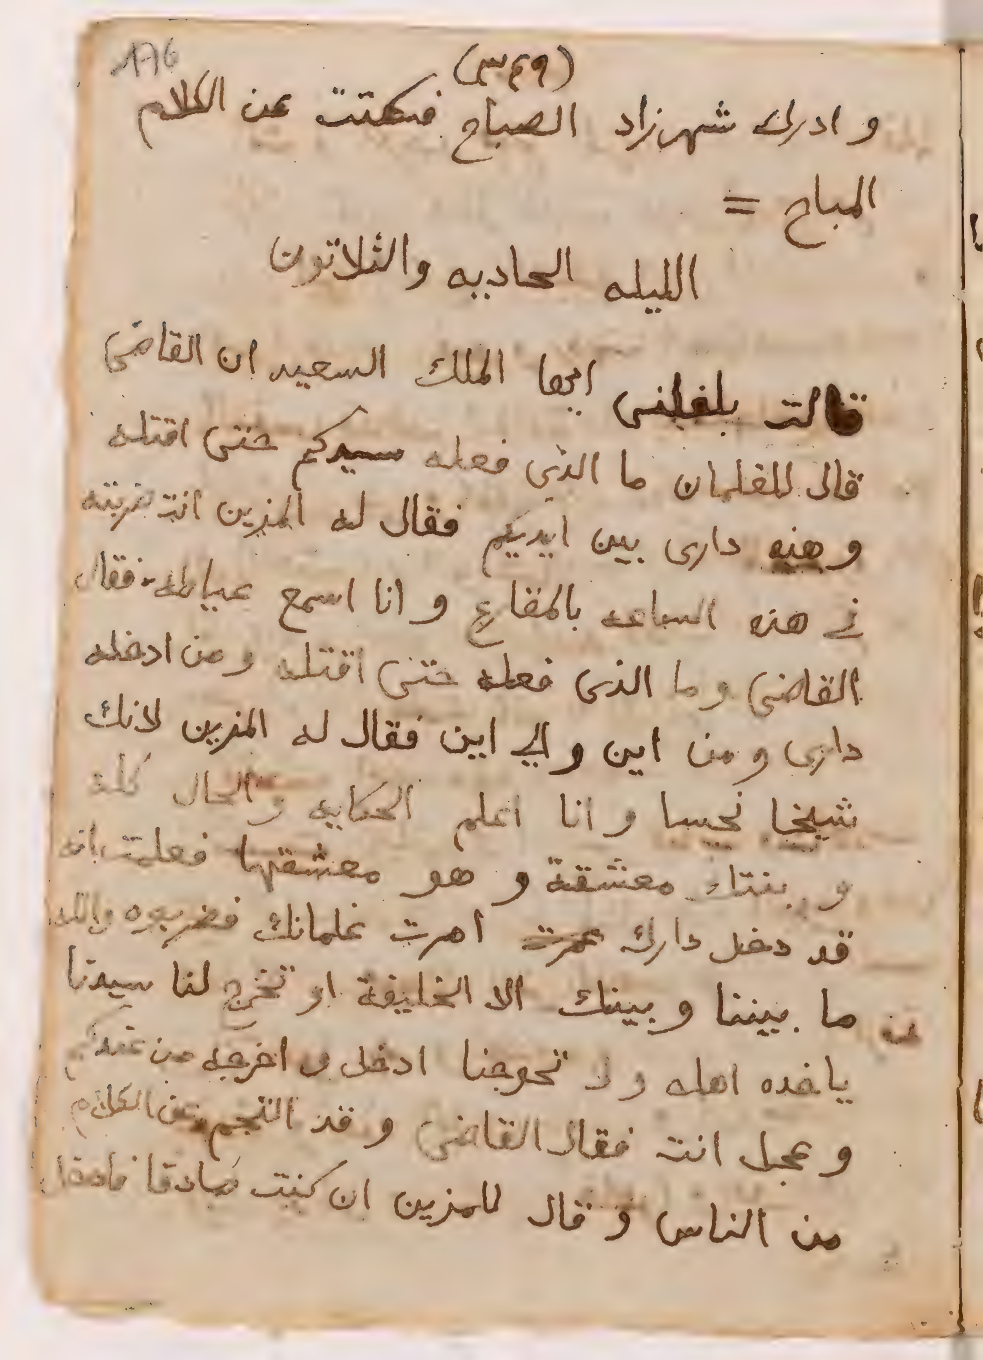 176
(٣٤٩)
و ادرك شهرزاد الصباح فسكتت عن الكلام
المباح =
الليله الحاديه والثلاتون
قالت بلغلنى ايها الملك السعيد ان القاضى
قال للغلمان ما الذى فعله سيدكم حتى اقتله
و هذه دارى بين ايديكم فقال له المزين انت ضربته
في هذه الساعه بالمقارع و انا اسمع عياطه فقال
القاضى و ما الذى فعله حتى اقتله و من ادخله
دارى و من اين و الي اين فقال له المزين لانك
شيخا نحيسا و انا اعلم الحكايه و الحال كله
و بنتك معشقة و هو معشقها فعلمت انه
قد دخل دارك عمرت امرت غلمانك فضربوه والله
ما بيننا و بينك الا الخليفة او تخرج لنا سيدنا
ياخده اهله و لا تحوجنا ادخل و اخرجه من عندكم
و عجل انت فقال القاضى و قد التجم عن الكلام
من الناس و قال للمزين ان كنت صادقا فادخل